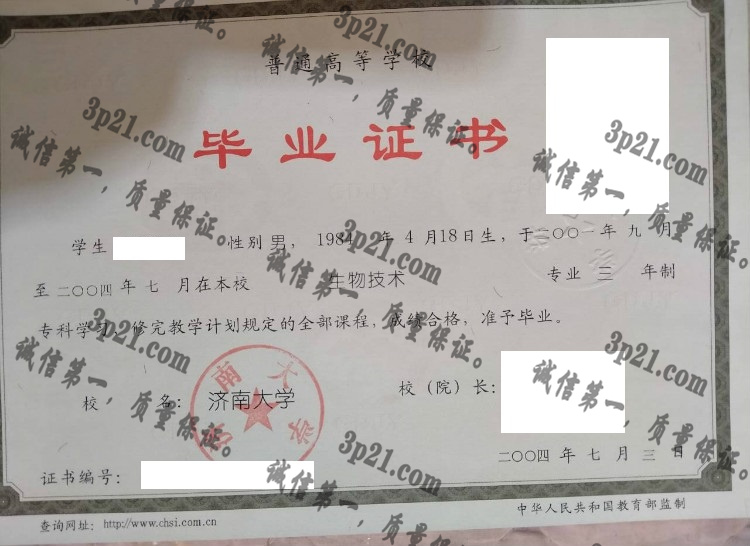 普通高等学校
毕业证书
学生 性别 男， 1984 年 4 月18日生，于二〇〇一年 九 月
至 二〇〇四 年 七 月在本校 生物技术 专业 三 年制
专科学习，修完教学计划规定的全部课程，成绩合格，准予毕业。
校 名： 济南大学 校（院）长：
二〇〇四 年 七 月 三 日
证书编号：
查询网址：http://www.chsi.com.cn
中华人民共和国教育部监制
3p21.com
诚信第一，质量保证。
3p21.com
诚信第一，质量保证。
3p21.com
诚信第一，质量保证。
3p21.com
诚信第一，质量保证。
3p21.com
诚信第一，质量保证。
3p21.com
诚信第一，质量保证。
3p21.com
诚信第一，质量保证。
3p21.com
诚信第一，质量保证。